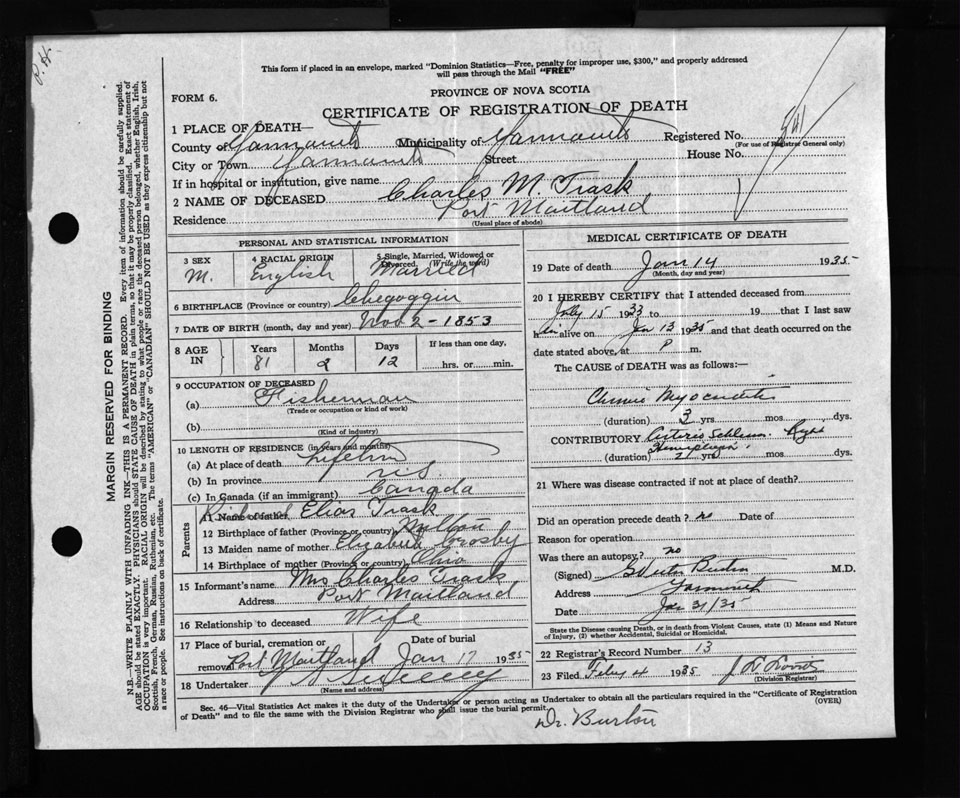 P. H.
This form if placed in an envelope, marked "Dominion Statistics—Free, penalty for improper use, $300," and properly addressed
will pass through the Mail "FREE"
FORM 6.
PROVINCE OF NOVA SCOTIA
CERTIFICATE OF REGISTRATION OF DEATH
1 PLACE OF DEATH—
County of Yarmouth Municipality of Yarmouth Registered No.
(For use of Registrar General only)
City or Town Yarmouth Street House No.
If in hospital or institution, give name
2 NAME OF DECEASED Charles M. Trask
Residence Port Maitland
(Usual place of abode)
MARGIN RESERVED FOR BINDING
N.B.—WRITE PLAINLY WITH UNFADING INK—THIS IS A PERMANENT RECORD. Every item of information should be carefully supplied.
AGE should be stated EXACTLY. PHYSICIANS should STATE CAUSE OF DEATH in plain terms, so that it may be properly classified. Exact statement of
OCCUPATION is very important. RACIAL ORIGIN will be described by stating to what people or race the deceased person belonged, whether English, Irish,
Scottish, French, German, Russian, Ruthenian, etc. The terms "AMERICAN" or "CANADIAN" SHOULD NOT BE USED as they express citizenship but not
a race or people. See instructions on back of certificate.
PERSONAL AND STATISTICAL INFORMATION
3 SEX
M.
4 RACIAL ORIGIN
English
5 Single, Married, Widowed or
Divorced. (Write the word)
Married
6 BIRTHPLACE (Province or country) Chegoggin
7 DATE OF BIRTH (month, day and year) Nov 2 - 1853
8 AGE IN
Years Months Days If less than one day,
81 2 12 hrs. or min.
9 OCCUPATION OF DECEASED
(a) Fisherman
(Trade or occupation or kind of work)
(b)
(Kind of industry)
10 LENGTH OF RESIDENCE (in years and months)
(a) At place of death Lifetime
(b) In province N.S.
(c) In Canada (if an immigrant) Canada
Parents
11 Name of father Elias Trask
12 Birthplace of father (Province or country)
13 Maiden name of mother Elizabeth Crosby
14 Birthplace of mother (Province or country) Ohio
15 Informant's name Mrs Charles Trask
Address Port Maitland
16 Relationship to deceased Wife
17 Place of burial, cremation or Date of burial
removal Port Maitland Jan 17 1935
18 Undertaker
(Name and address)
MEDICAL CERTIFICATE OF DEATH
19 Date of death Jan 14 1935
(Month, day and year)
20 I HEREBY CERTIFY that I attended deceased from
July 15 1933 to 19 that I last saw
him alive on Jan 13 1935 and that death occurred on
date stated above, at P m.
The CAUSE of DEATH was as follows:—
Chronic Myocarditis
(duration) 3 yrs mos. dys.
CONTRIBUTORY Arterio Sclerosis. Right
Hemiplegia
(duration) 2 yrs mos. dys.
21 Where was disease contracted if not at place of death?
Did an operation precede death? no Date of
Reason for operation
Was there an autopsy? no
(Signed) M.D.
Address Yarmouth
Date Jan 31/35
State the Disease causing Death, or in death from Violent Causes, state (1) Means and Nature
of Injury, (2) whether Accidental, Suicidal or Homicidal.
22 Registrar's Record Number 13
23 Filed Feby 4 1935
(Division Registrar)
Sec. 46—Vital Statistics Act makes it the duty of the Undertaker or person acting as Undertaker to obtain all the particulars required in the "Certificate of Registration
of Death" and to file the same with the Division Registrar who shall issue the burial permit.
(OVER)
Dr. Burton